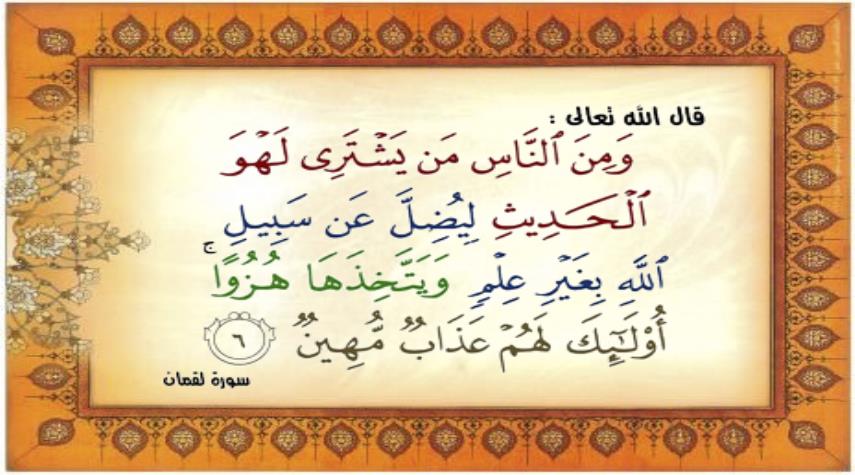 قال الله تعالى :
وَمِنَ ٱلنَّاسِ مَن يَشْتَرِى لَهْوَ
ٱلْحَدِيثِ لِيُضِلَّ عَن سَبِيلِ
ٱللَّهِ بِغَيْرِ عِلْمٍ وَيَتَّخِذَهَا هُزُوًا ۚ
أُو۟لَـٰٓئِكَ لَهُمْ عَذَابٌ مُّهِينٌ ٦
سورة لقمان